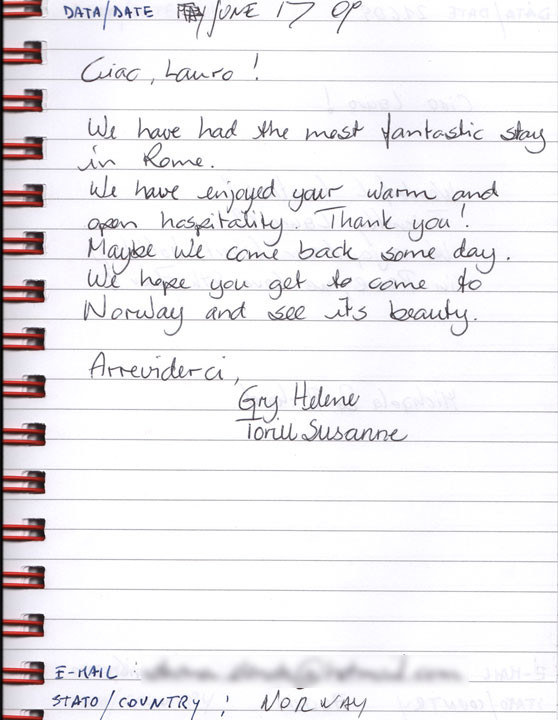 DATA/DATE JUNE 17 09
Ciao, Lauro!
We have had the most fantastic stay
in Rome.
We have enjoyed your warm and
open hospitality. Thank you!
Maybe we come back some day.
We hope you get to come to
Norway and see its beauty.
Arreviderci,
Gry Helene
Torill Susanne
E-MAIL :
STATO/COUNTRY : NORWAY